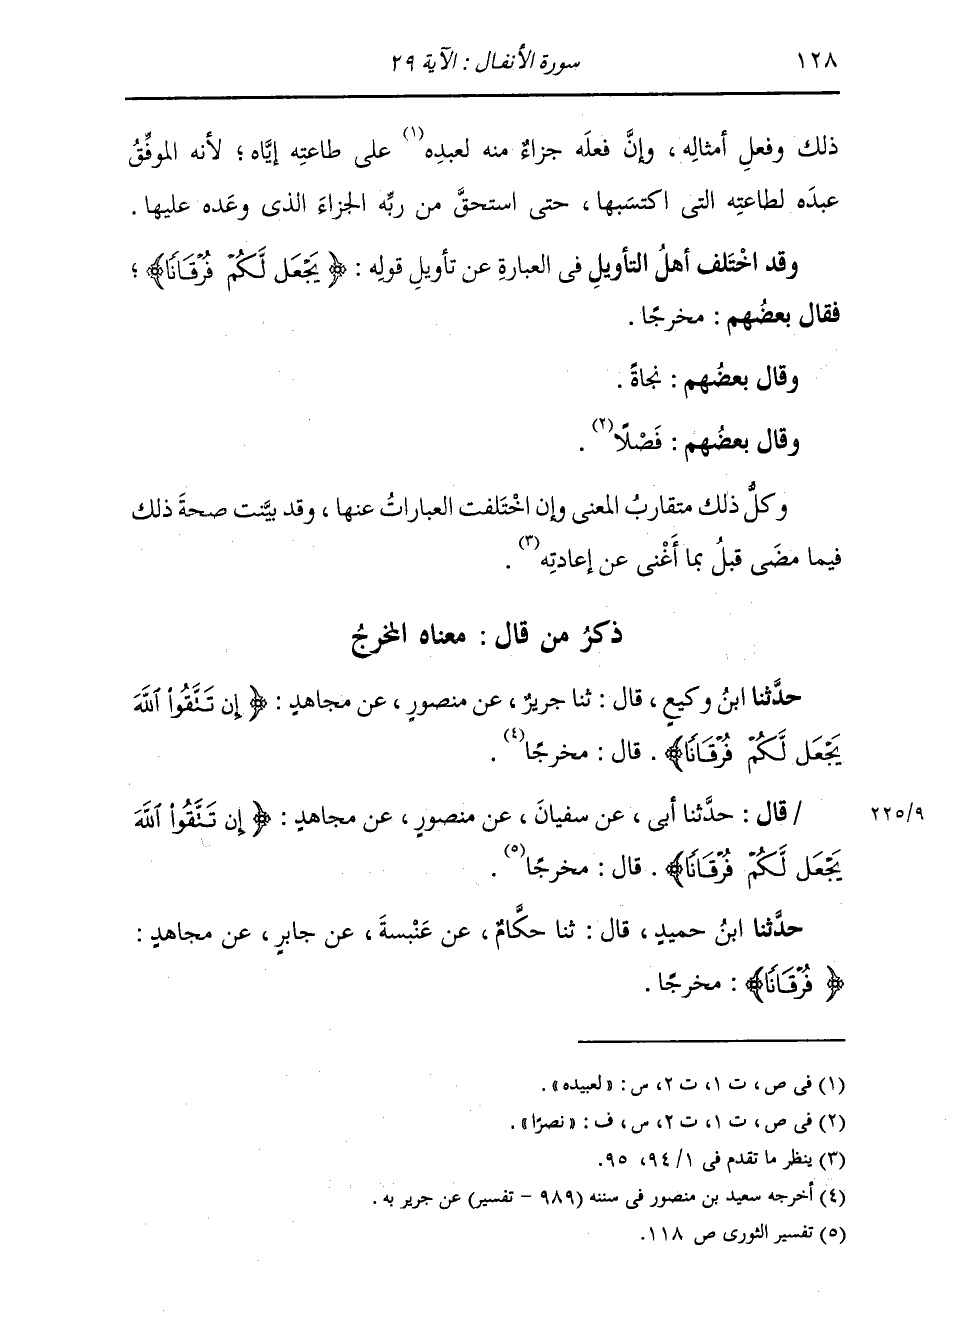 ١٢٨ سورة الأنفال : الآية ٢٩
ذلك وفعلِ أمثالِه ، وإنَّ فعلَه جزاءٌ منه لعبدِه(١) على طاعتِه إيَّاه ؛ لأنه الموفِّقُ
عبدَه لطاعتِه التى اكتسَبها ، حتى استحقَّ من ربِّه الجزاءَ الذى وعَده عليها .
وقد اخْتَلف أهلُ التأويلِ فى العبارةِ عن تأويلِ قولِه : ﴿ يَجْعَل لَّكُمْ فُرْقَانًا ﴾ ؛
فقال بعضُهم : مخرجًا .
وقال بعضُهم : نجاةً .
وقال بعضُهم : فَصْلًا(٢) .
وكلُّ ذلك متقاربُ المعنى وإن اخْتَلفت العباراتُ عنها ، وقد بيَّنت صحةَ ذلك
فيما مضَى قبلُ بما أَغْنى عن إعادتِه(٣) .
ذكرُ من قال : معناه المخرجُ
حدَّثنا ابنُ وكيعٍ ، قال : ثنا جريرٌ ، عن منصورٍ ، عن مجاهدٍ : ﴿ إِن تَتَّقُوا۟ ٱللَّهَ
يَجْعَل لَّكُمْ فُرْقَانًا ﴾ . قال : مخرجًا(٤) .
٢٢٥/٩ / قال : حدَّثنا أبى ، عن سفيانَ ، عن منصورٍ ، عن مجاهدٍ : ﴿ إِن تَتَّقُوا۟ ٱللَّهَ
يَجْعَل لَّكُمْ فُرْقَانًا ﴾ . قال : مخرجًا(٥) .
حدَّثنا ابنُ حميدٍ ، قال : ثنا حكَّامٌ ، عن عَنْبسةَ ، عن جابرٍ ، عن مجاهدٍ :
﴿ فُرْقَانًا ﴾ : مخرجًا .
(١) فى ص ، ت ١، ت ٢، س : « لعبيده » .
(٢) فى ص ، ت ١، ت ٢، س ، ف : « نصرًا » .
(٣) ينظر ما تقدم فى ١/ ٩٤، ٩٥.
(٤) أخرجه سعيد بن منصور فى سننه (٩٨٩ - تفسير) عن جرير به .
(٥) تفسير الثورى ص ١١٨.